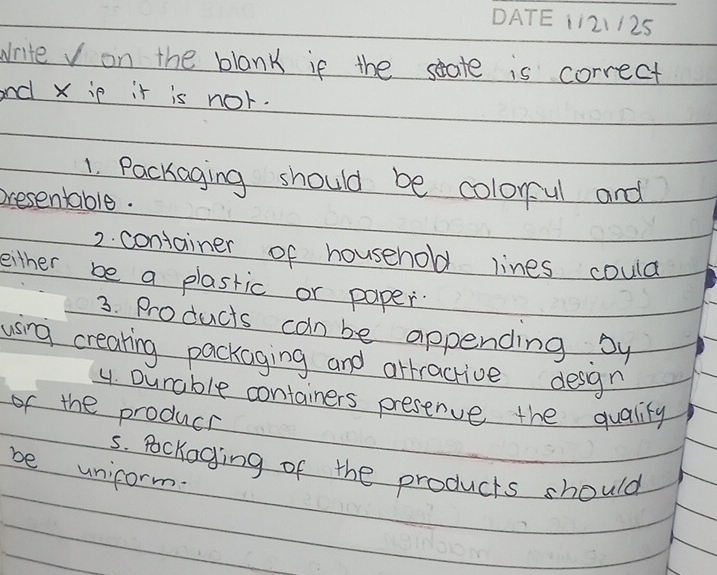 DATE 11/21/25
Write ✓ on the blank if the state is correct
and x if it is not.
1. Packaging should be colorful and
presentable.
2. Container of household lines could
either be a plastic or paper.
3. Products can be appending by
using creating packaging and attractive design
4. Durable containers preserve the quality
of the product
5. Packaging of the products should
be uniform.